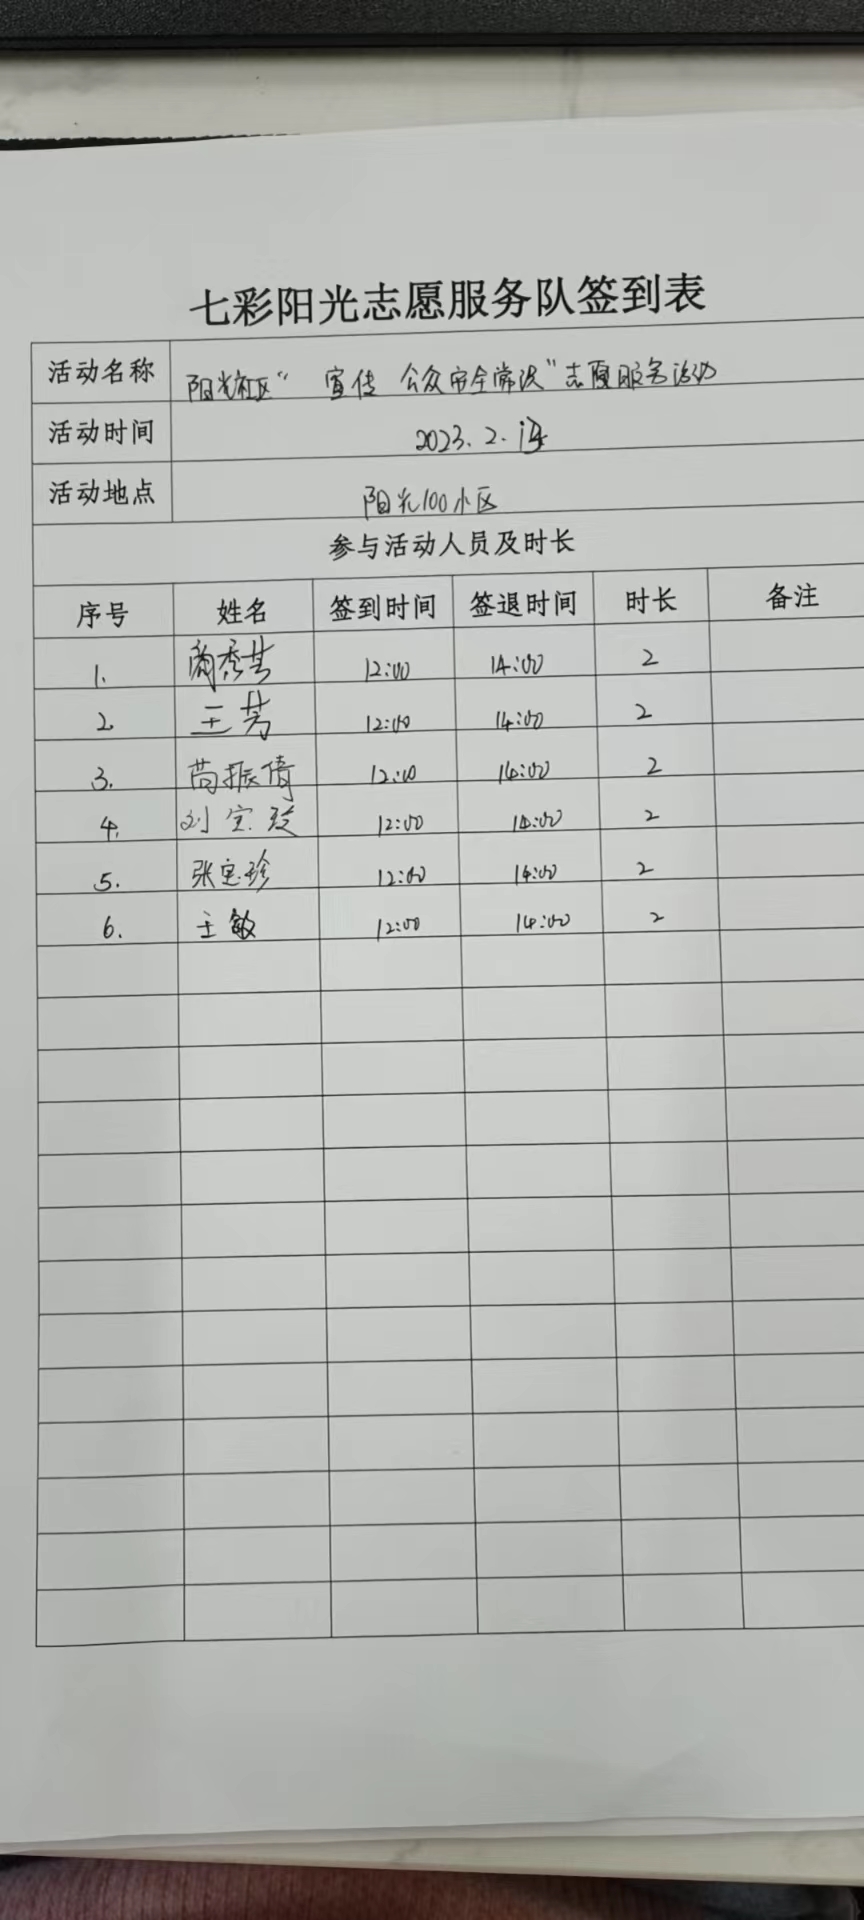 七彩阳光志愿服务队签到表
活动名称 阳光社区“ 宣传 公众安全常识”志愿服务活动
活动时间 2023.2.
活动地点 阳光100小区
参与活动人员及时长
序号 姓名 签到时间 签退时间 时长 备注
1. 12:00 14:00 2
2. 王芳 12:00 14:00 2
3. 苘振倩 12:00 14:00 2
4. 刘宝玲 12:00 14:00 2
5. 张宝珍 12:00 14:00 2
6. 王敏 12:00 14:00 2